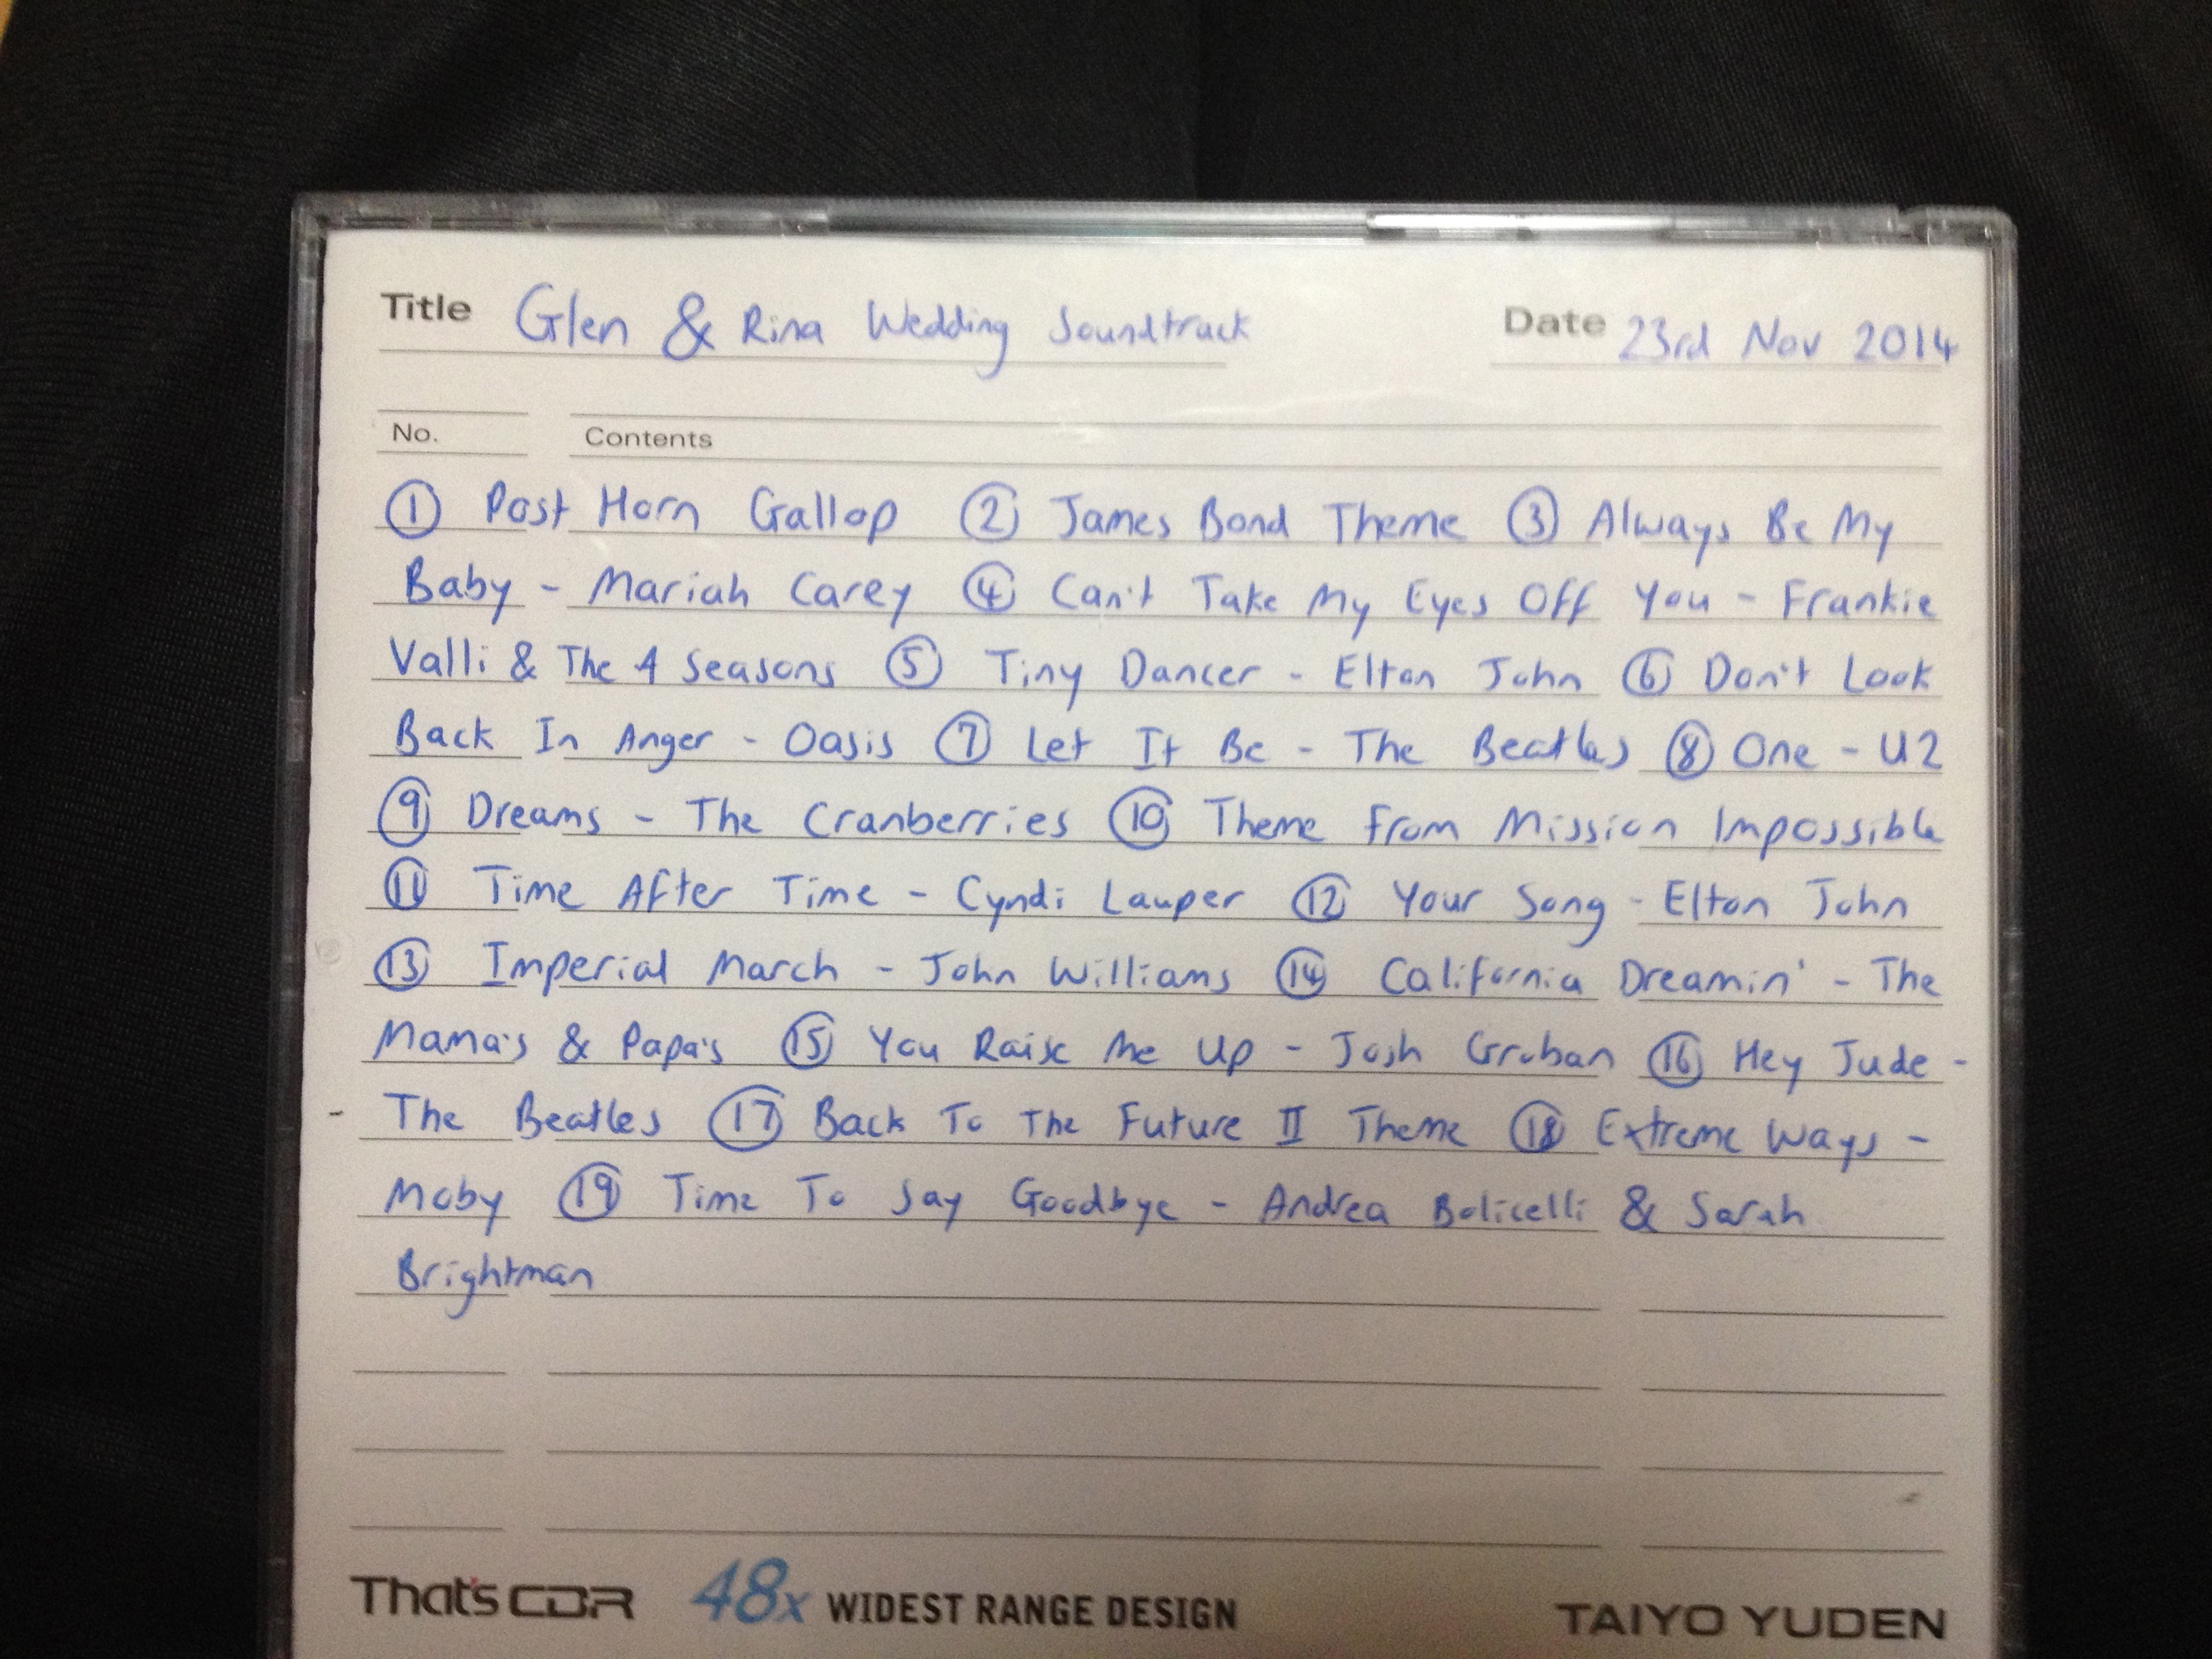 Title Glen & Rina Wedding Soundtrack Date 23rd Nov 2014
No. Contents
① Post Horn Gallop ② James Bond Theme ③ Always Be My
Baby - Mariah Carey ④ Can't Take My Eyes Off You - Frankie
Valli & The 4 Seasons ⑤ Tiny Dancer - Elton John ⑥ Don't Look
Back In Anger - Oasis ⑦ Let It Be - The Beatles ⑧ One - U2
⑨ Dreams - The Cranberries ⑩ Theme From Mission Impossible
⑪ Time After Time - Cyndi Lauper ⑫ Your Song - Elton John
⑬ Imperial March - John Williams ⑭ California Dreamin' - The
Mama's & Papa's ⑮ You Raise Me Up - Josh Groban ⑯ Hey Jude -
- The Beatles ⑰ Back To The Future II Theme ⑱ Extreme Ways -
Moby ⑲ Time To Say Goodbye - Andrea Bolicelli & Sarah
Brightman
That's CDR 48x WIDEST RANGE DESIGN TAIYO YUDEN